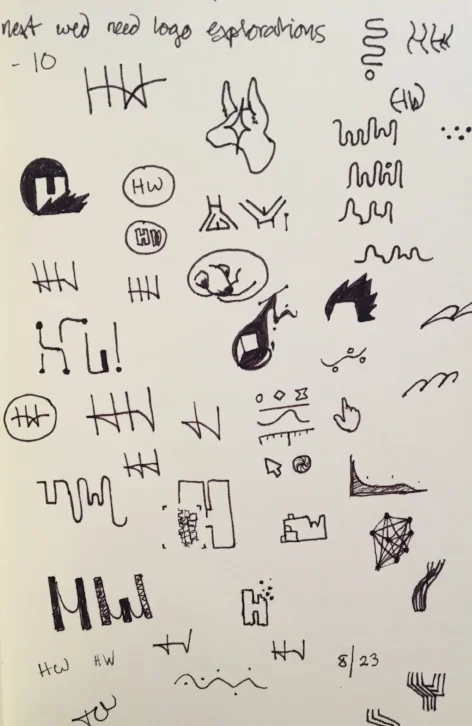 next wed need logo explorations
- 10
HW
HW
HW
HW
HW
HW
H
HW HW
8/23